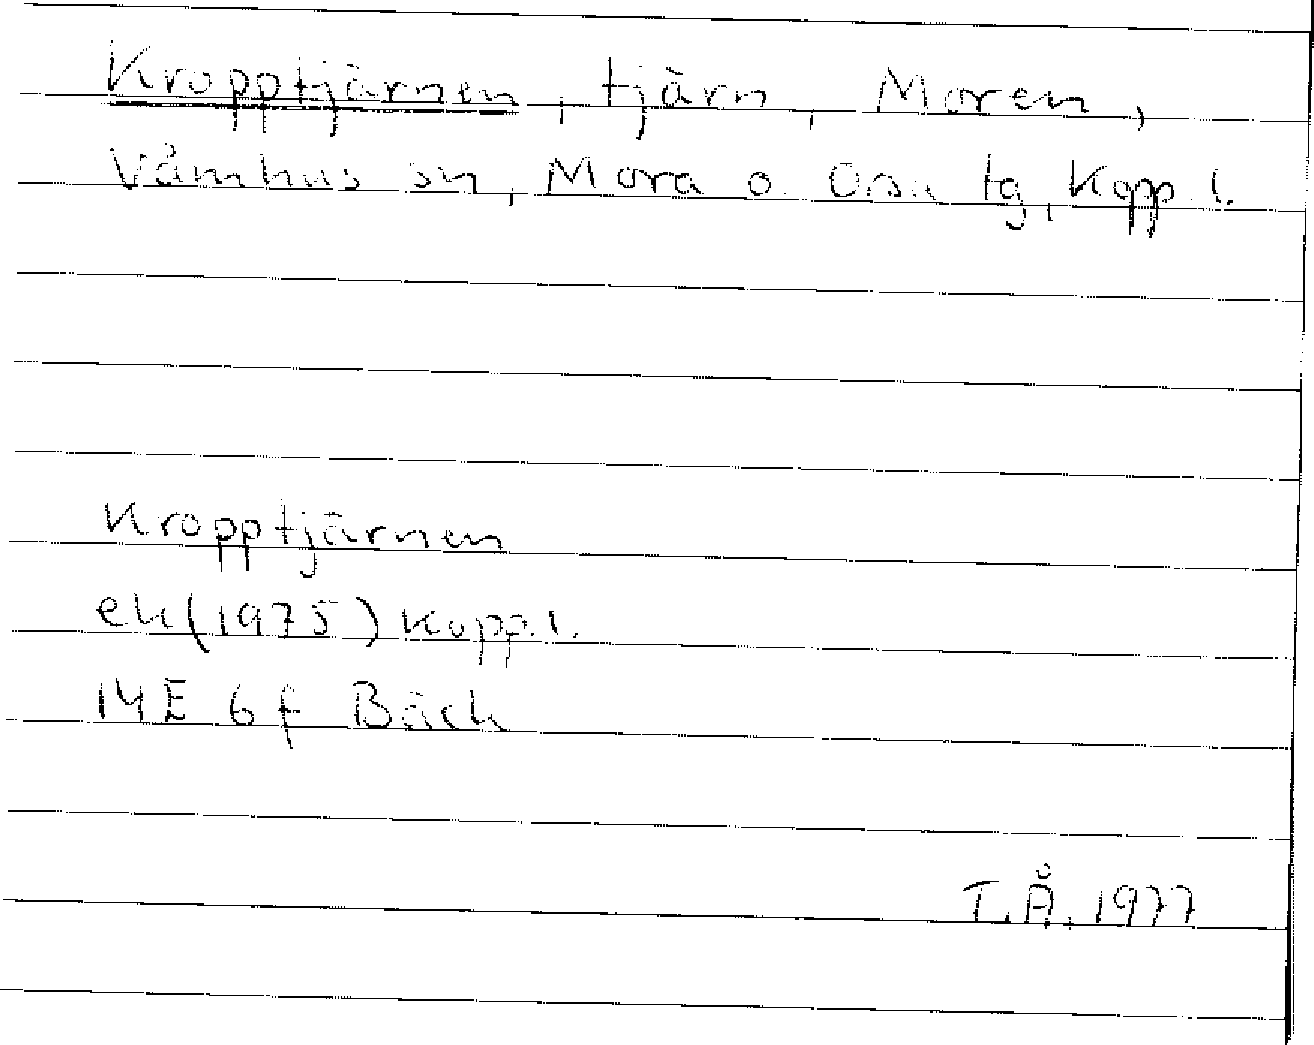 Kropptjärnen, tjärn, Moren,
Våmhus sn, Mora o. Orsa tg, Kopp. l.
Kropptjärnen
ek(1975) Kopp. l.
14E 6f Bäck
T.Å. 1977